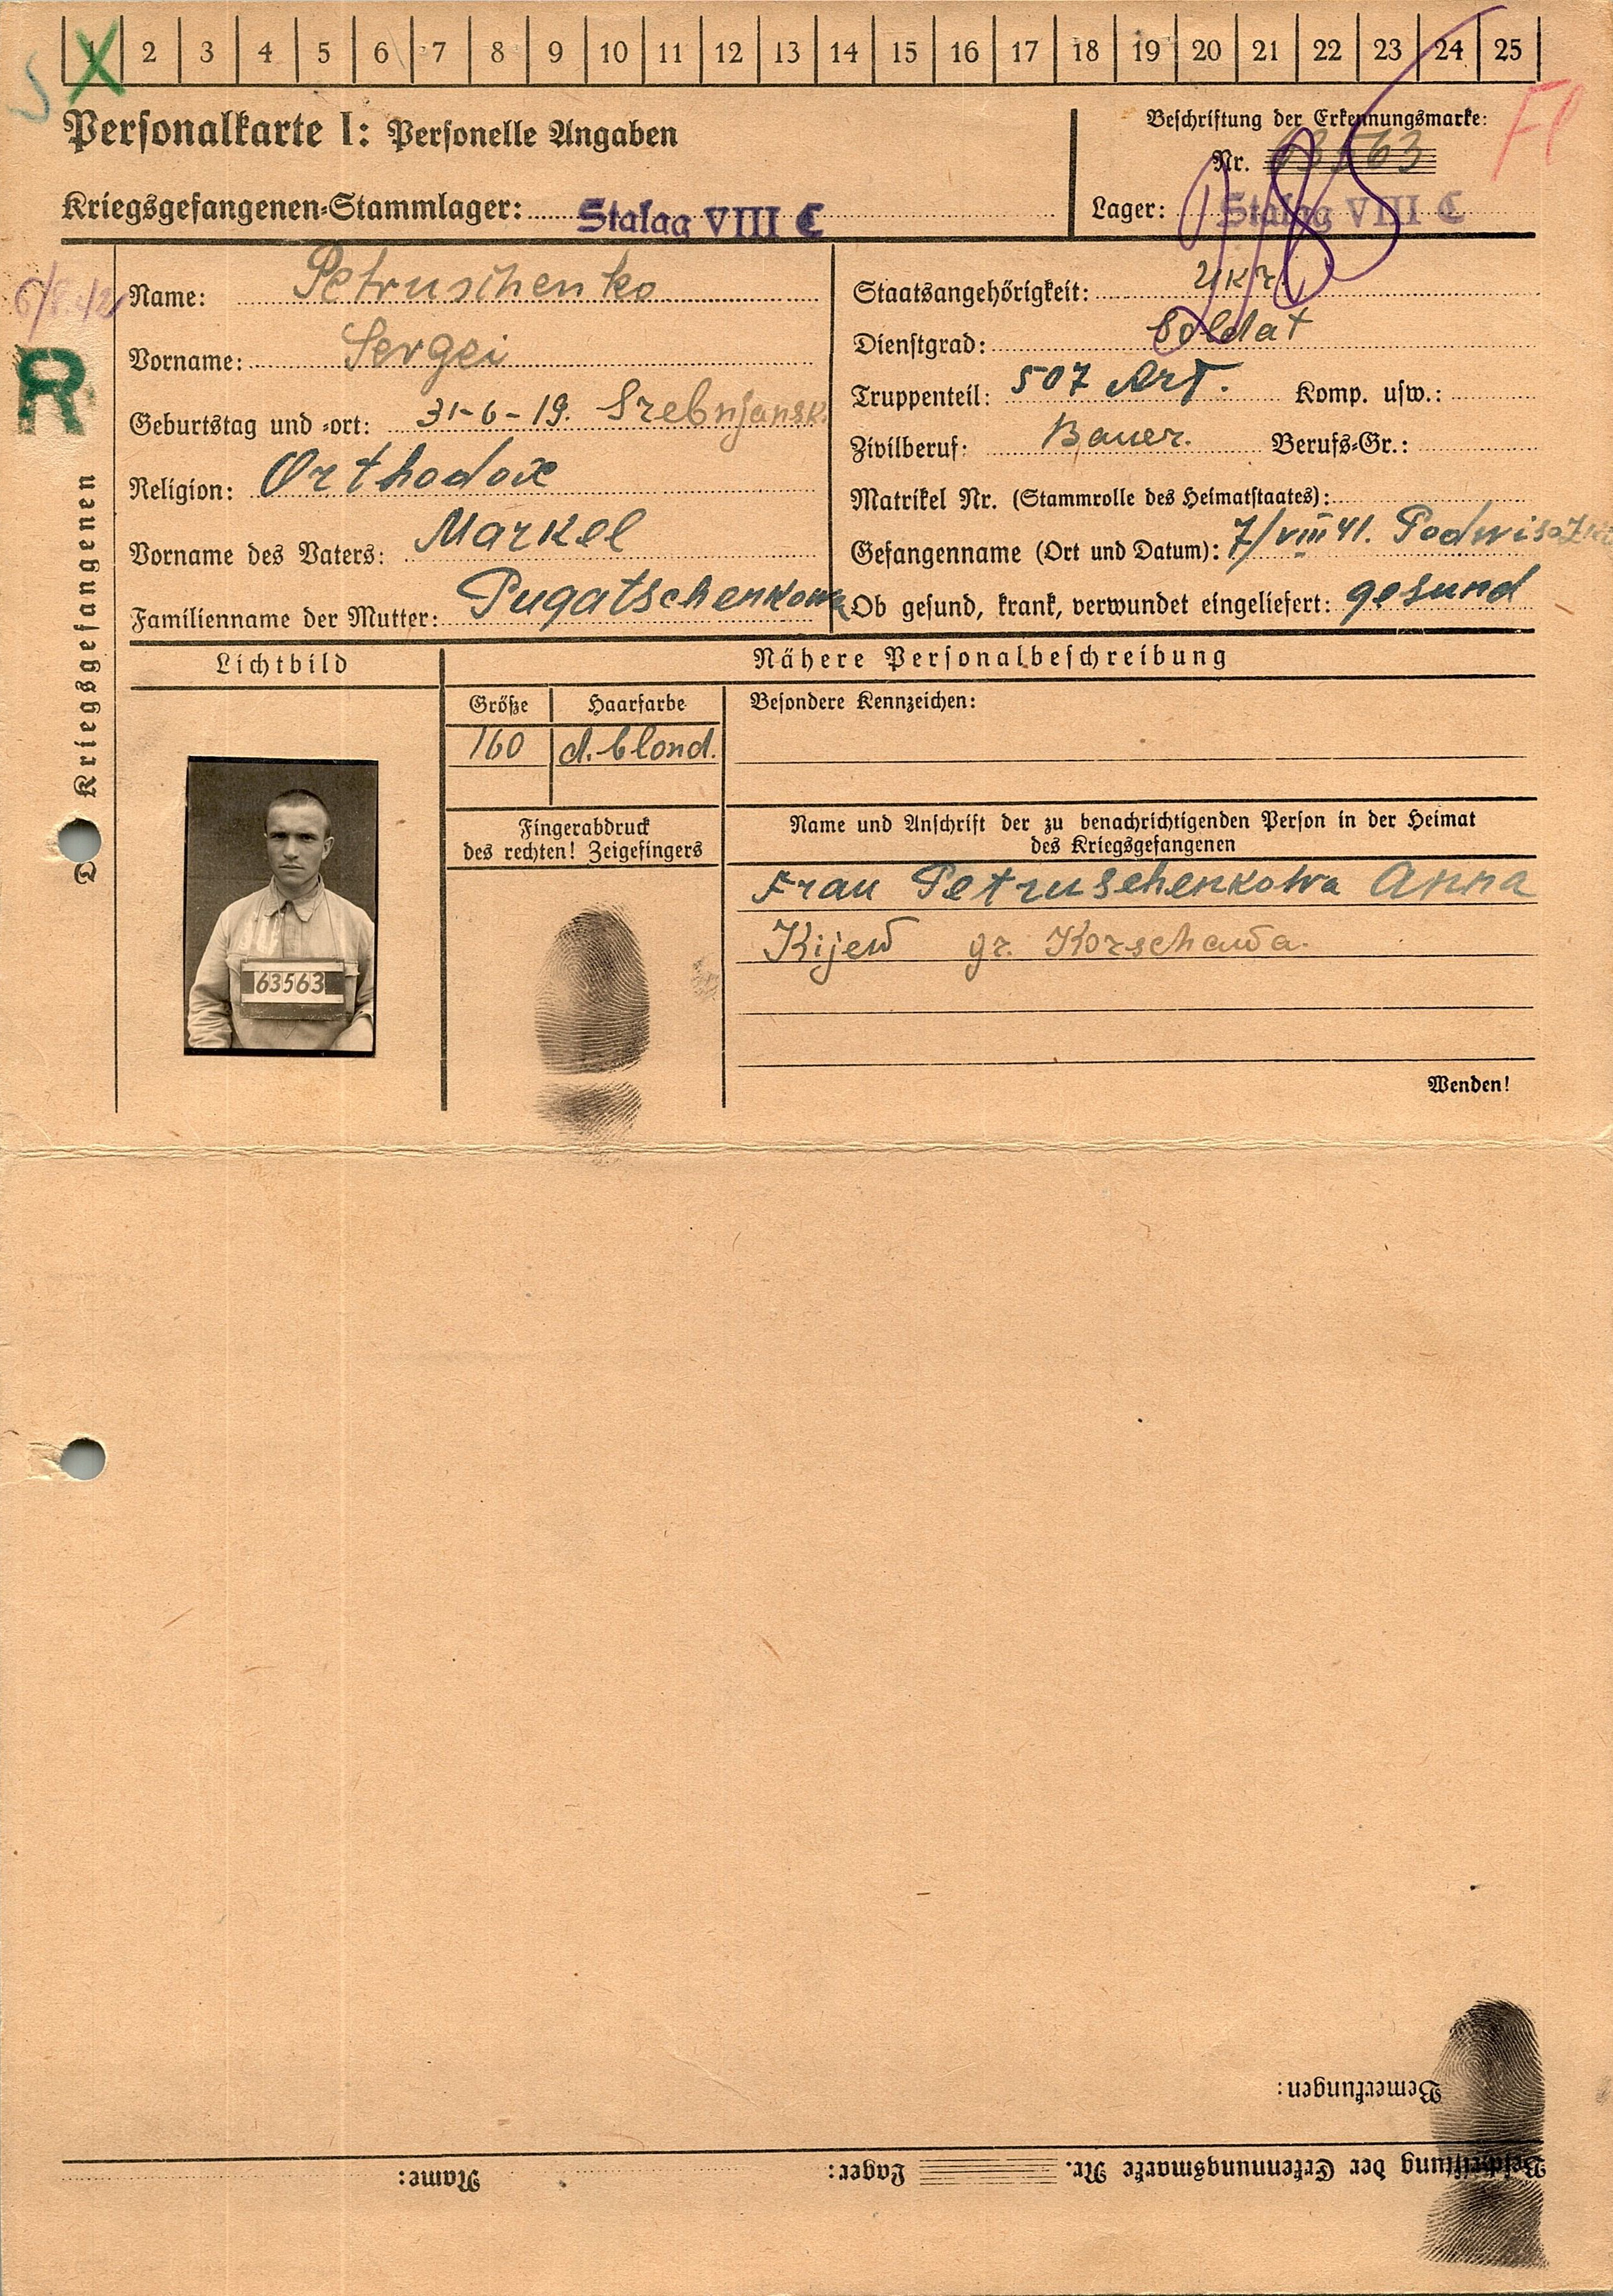 1 2 3 4 5 6 7 8 9 10 11 12 13 14 15 16 17 18 19 20 21 22 23 24 25
Personalkarte I: Personelle Angaben
Beschriftung der Erkennungsmarke:
Nr. 63563
Fl
Kriegsgefangenen-Stammlager: Stalag VIII C
Lager: Stalag VIII C
Name: Petruschenko
Vorname: Sergei
Geburtstag und -ort: 31-6-19. Srebnjansk
Religion: Orthodox
Vorname des Vaters: Markel
Familienname der Mutter: Pugatschenkowa
Staatsangehörigkeit: Ukr.
Dienstgrad: Soldat
Truppenteil: 507 Art. Komp. usw.:
Zivilberuf: Bauer. Berufs-Gr.:
Matrikel Nr. (Stammrolle des Heimatstaates):
Gefangenname (Ort und Datum): 7/VIII 41.
Ob gesund, krank, verwundet eingeliefert: gesund
R
Kriegsgefangenen
Lichtbild
Nähere Personalbeschreibung
Größe Haarfarbe
160 d. blond.
Besondere Kennzeichen:
Fingerabdruck
des rechten! Zeigefingers
Name und Anschrift der zu benachrichtigenden Person in der Heimat
des Kriegsgefangenen
Frau Petruschenkowa Anna
Kijew gr. Korschawa.
63563
Wenden!
Bemerkungen:
Beschriftung der Erkennungsmarke Nr. Lager: Name: